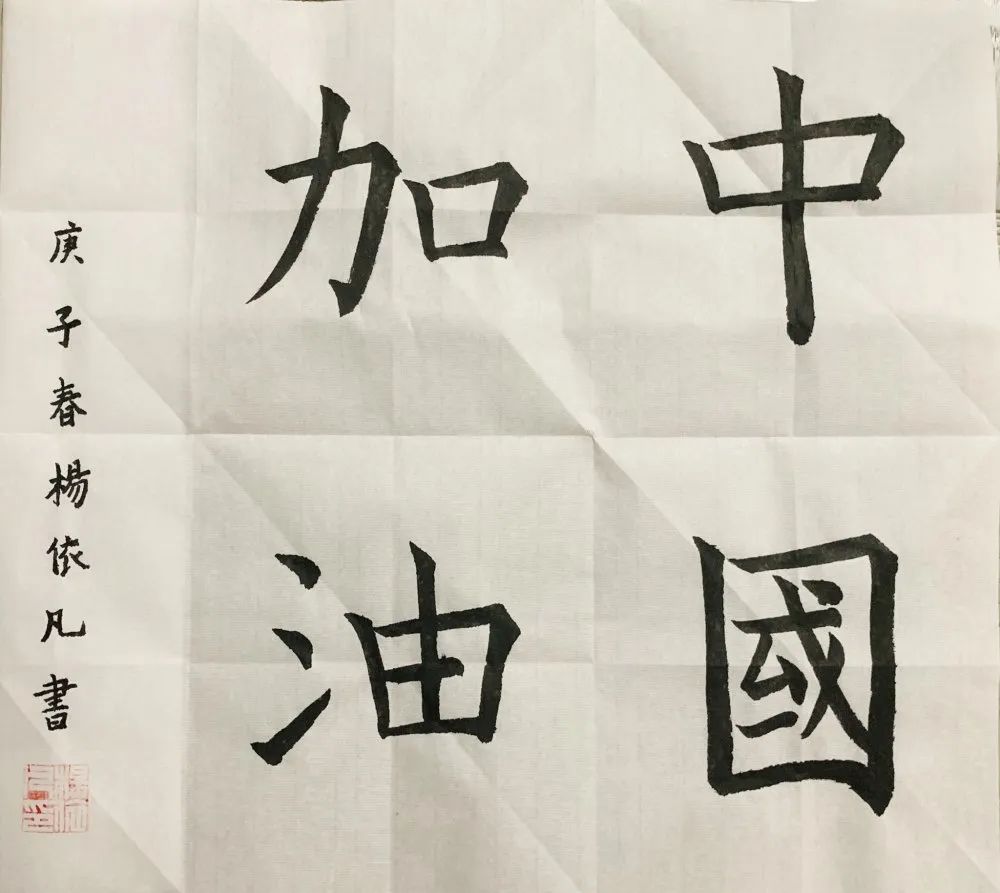 中國
加油
庚子春楊依凡書